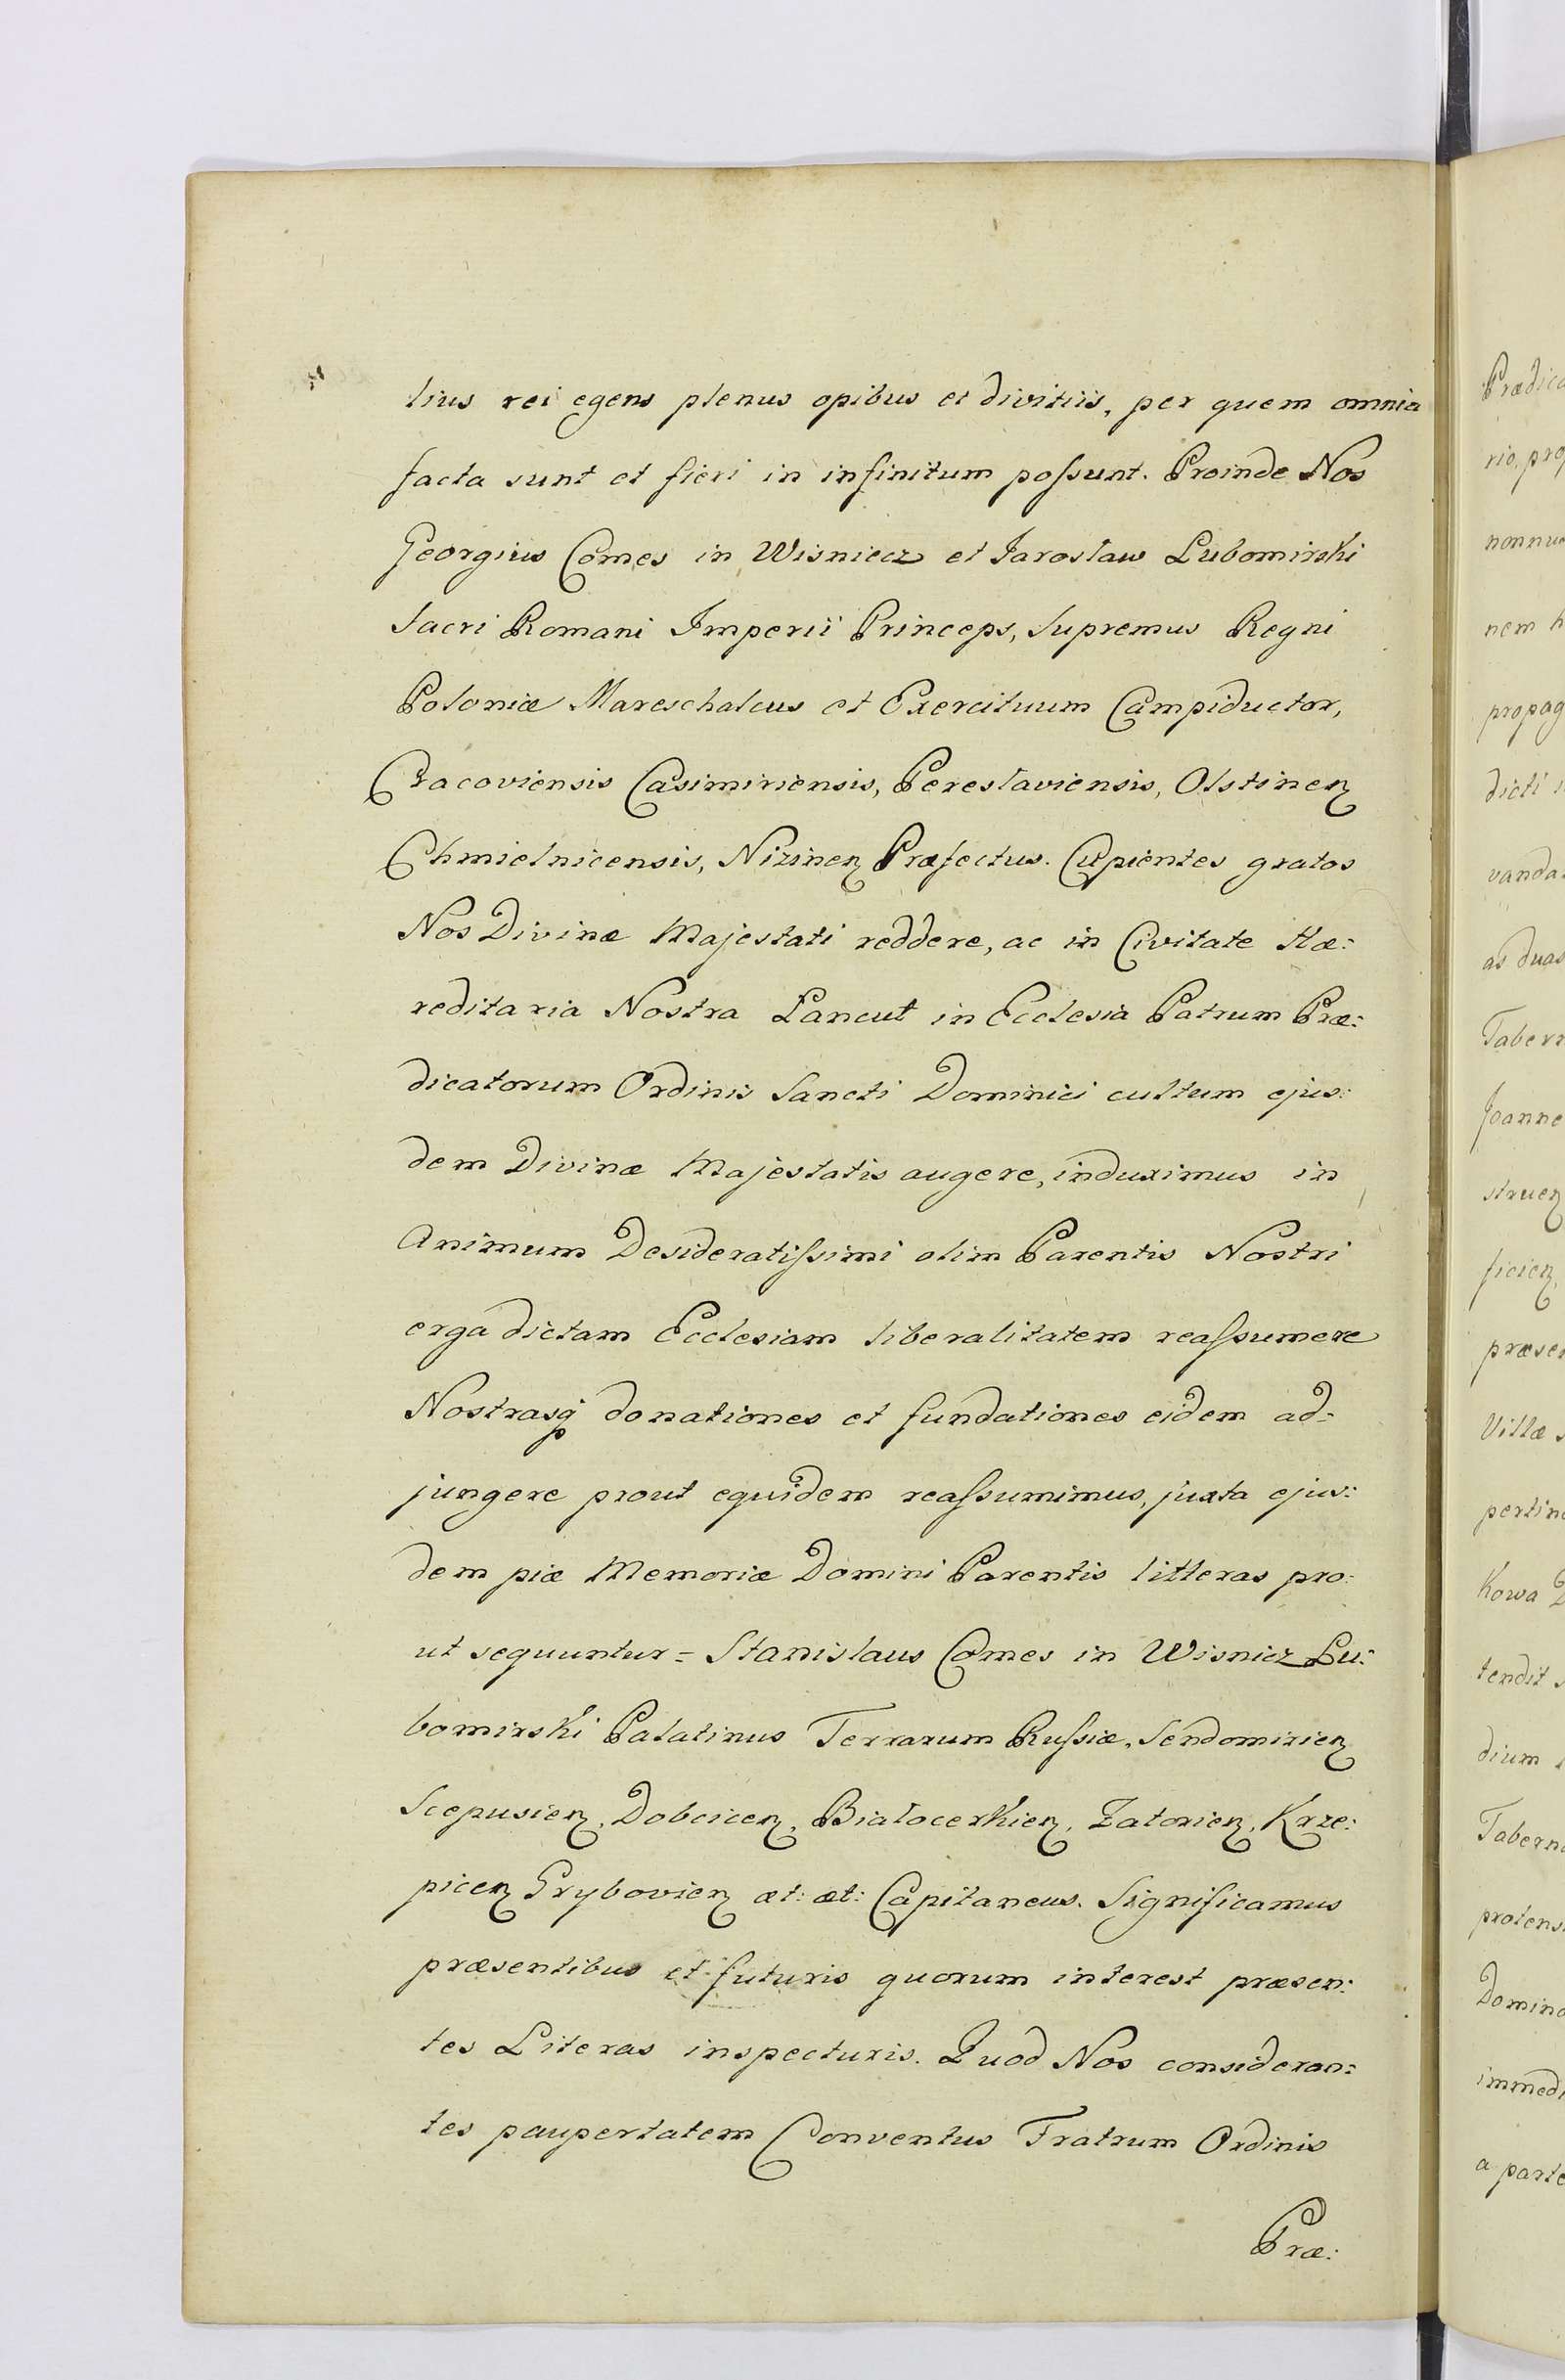 lius rei egens plenus opibus et divitiis, per quem omnia
facta sunt et fieri in infinitum poſsunt. Proinde Nos
Georgius Comes in Wisniecz et Jaroslaw Lubomirski
Sacri Romani Imperii Princeps, Supremus Regni
Poloniæ Mareschalcus et Exercituum Campiductor,
Cracoviensis Casimiriensis, Pereslaviensis, Olstinen
Chmielnicensis, Nizinen Præfectus. Cupientes gratos
Nos Divinæ Majestati reddere, ac in Civitate Hæ:
reditaria Nostra Lancut in Ecclesia Patrum Præ:
dicatorum Ordinis Sancti Dominici cultum ejus:
dem Divinæ Majestatis augere, induximus in
Animum Desideratiſsimi olim Parentis Nostri
erga dictam Ecclesiam liberalitatem reaſsumere
Nostrasq donationes et fundationes eidem ad:
jungere prout equidem reaſsumimus, juxta ejus:
dem piæ Memoriæ Domini Parentis litteras pro:
ut sequuntur = Stanislaus Comes in Wisnicz Lu:
bomirski Palatinus Terrarum Ruſsiæ, Sendomirien
Scepusien, Dobcicen, Bialocerkien, Zatorien, Krze:
picen Grybovien æt: æt: Capitaneus. Significamus
præsentibus et futuris quorum interest præsen:
tes Literas inspecturis. Quod Nos consideran:
tes paupertatem Conventus Fratrum Ordinis
Præ:
Prædica
rio, prop
nem h
propag
dicti
vanda
as duas
Tabern
Joanne
struen
ficien,
præsen
Villæ s
pertine
kowa D
tendit s
dium
Taberna
protens
Domino
immedi
a parte